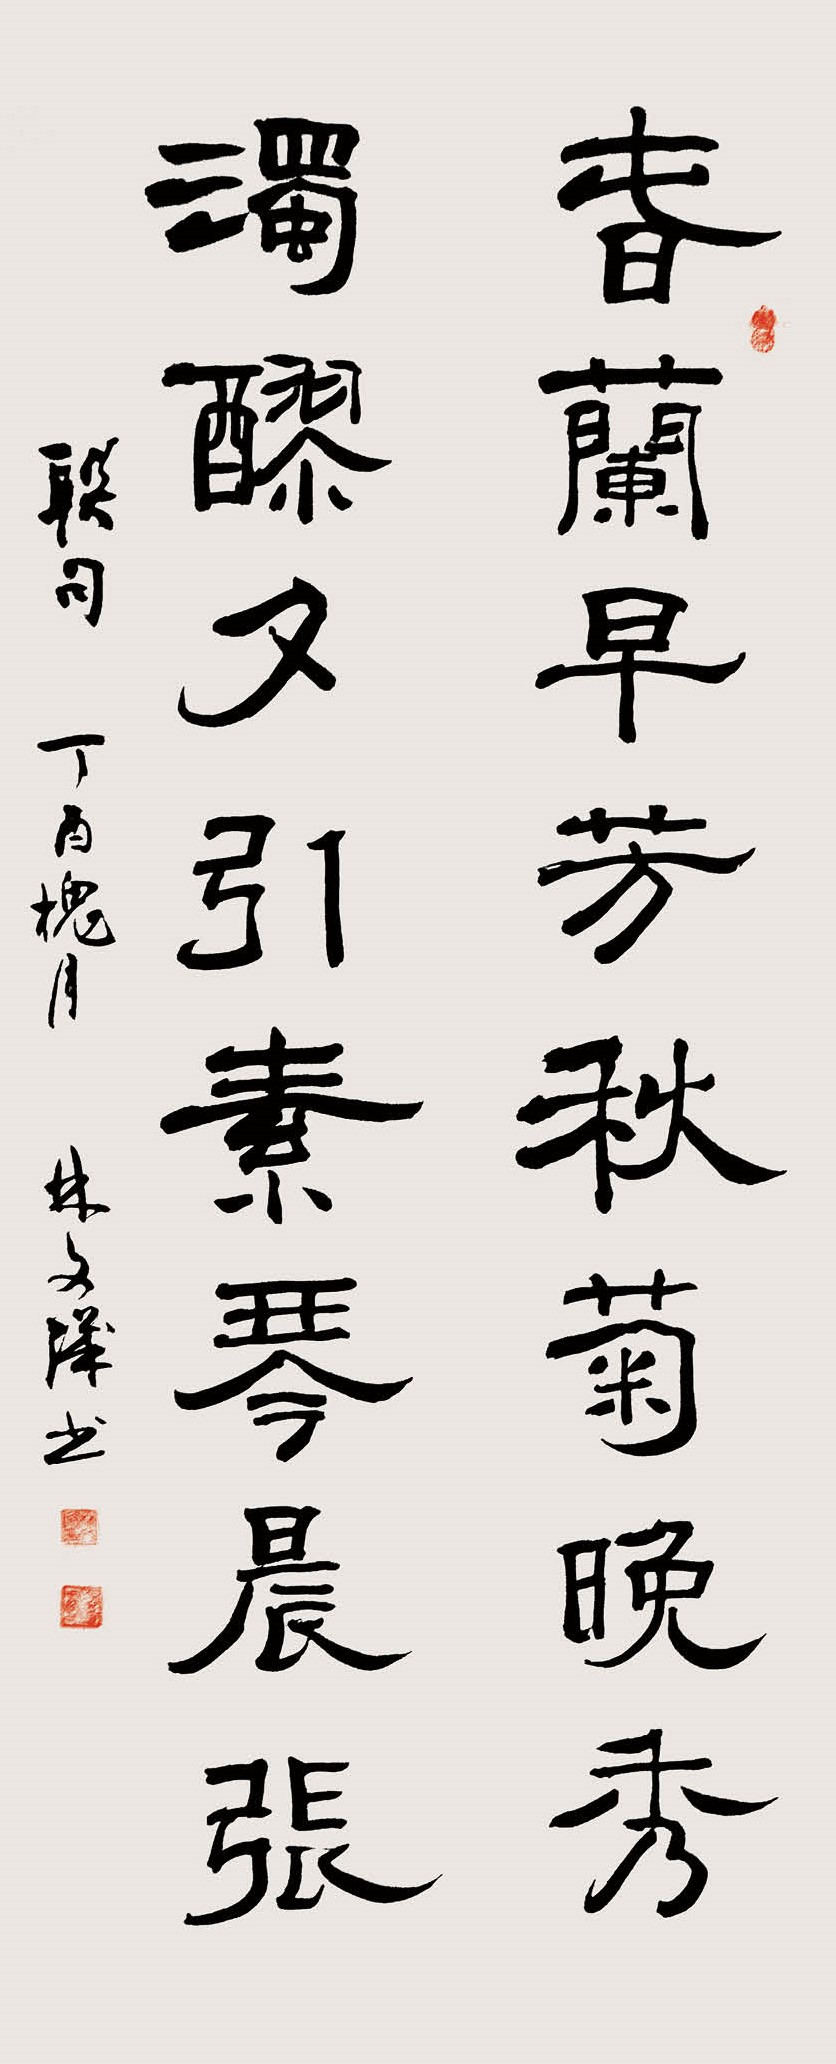 春蘭早芳秋菊晚秀
濁醪夕引素琴晨張
聯句 丁酉槐月 林文澤书